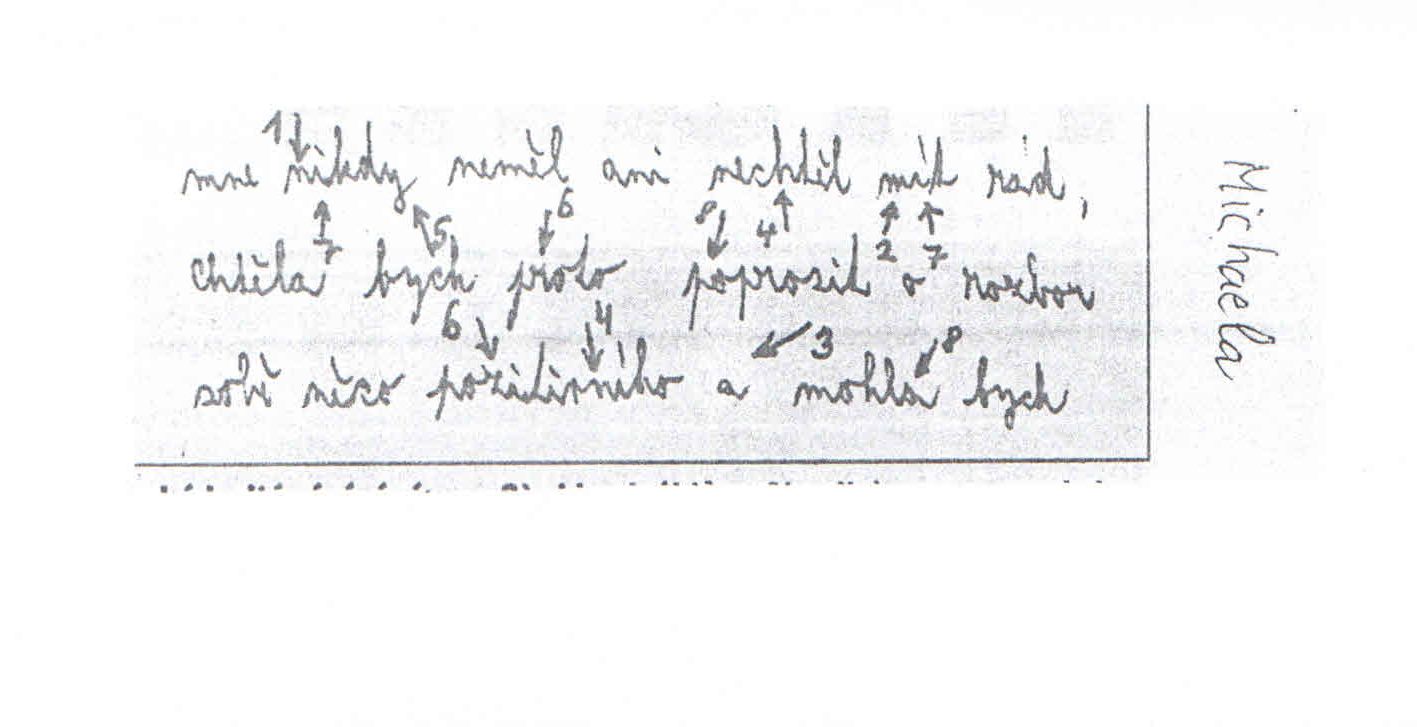 mne nikdy neměl ani nechtěl mít rád,
chtěla bych proto poprosit o rozbor
sobě něco pozitivního a mohla bych
Michaela
1
6
8
1
5
4
2
7
6
4
3
8